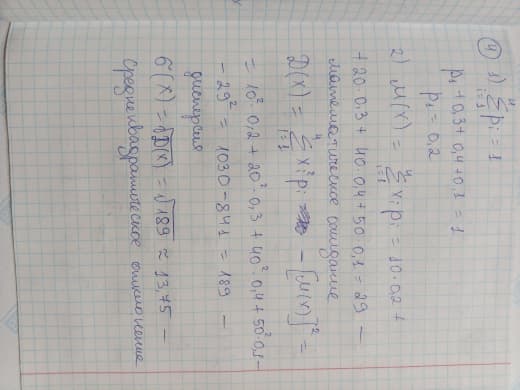 ④ 1) 4 Σ i=1 pi = 1
p1 + 0,3 + 0,4 + 0,1 = 1
p1 = 0,2
2) M(X) = 4 Σ i=1 xi pi = 10·0,2 +
+ 20·0,3 + 40·0,4 + 50·0,1 = 29 —
математическое ожидание
D(X) = 4 Σ i=1 xi² pi — [M(X)]² =
= 10²·0,2 + 20²·0,3 + 40²·0,4 + 50²·0,1 —
— 29² = 1030 - 841 = 189 —
дисперсия
σ(X) = √D(X) = √189 ≈ 13,75 —
среднеквадратическое отклонение